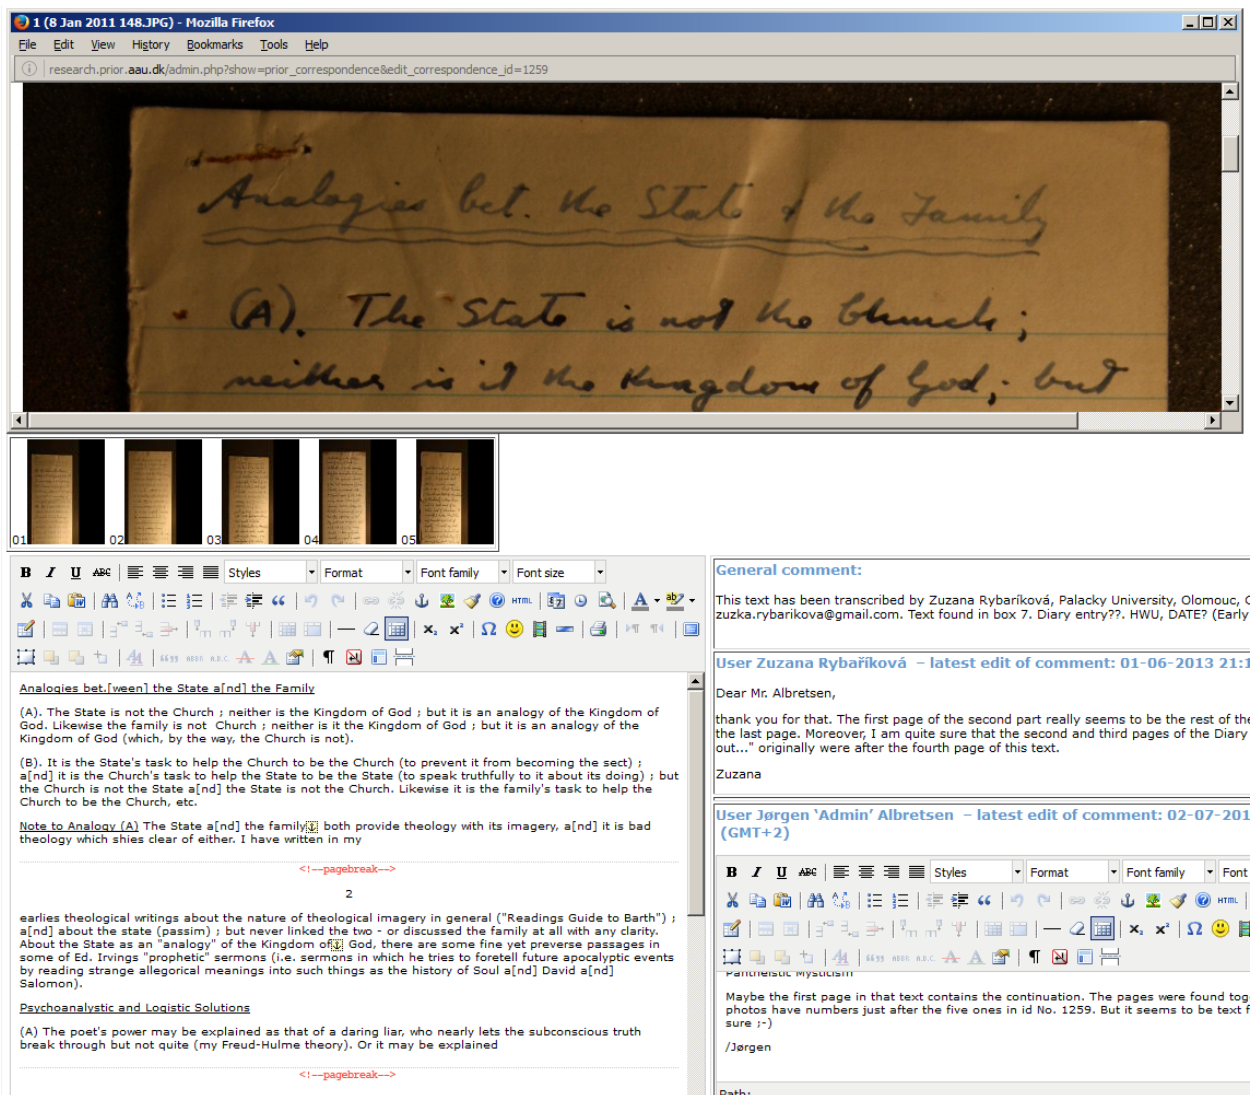 1 (8 Jan 2011 148.JPG) - Mozilla Firefox
File Edit View History Bookmarks Tools Help
research.prior.aau.dk/admin.php?show=prior_correspondence&edit_correspondence_id=1259
Analogies bet. the State & the Family
(A). The State is not the Church;
neither is it the Kingdom of God; but
01 02 03 04 05
B I U ABC Styles Format Font family Font size
HTML
Analogies bet.[ween] the State a[nd] the Family
(A). The State is not the Church ; neither is the Kingdom of God ; but it is an analogy of the Kingdom of
God. Likewise the family is not Church ; neither is it the Kingdom of God ; but it is an analogy of the
Kingdom of God (which, by the way, the Church is not).
(B). It is the State's task to help the Church to be the Church (to prevent it from becoming the sect) ;
a[nd] it is the Church's task to help the State to be the State (to speak truthfully to it about its doing) ; but
the Church is not the State a[nd] the State is not the Church. Likewise it is the family's task to help the
Church to be the Church, etc.
Note to Analogy (A) The State a[nd] the family both provide theology with its imagery, a[nd] it is bad
theology which shies clear of either. I have written in my
<!--pagebreak-->
2
earlies theological writings about the nature of theological imagery in general ("Readings Guide to Barth") ;
a[nd] about the state (passim) ; but never linked the two - or discussed the family at all with any clarity.
About the State as an "analogy" of the Kingdom of God, there are some fine yet preverse passages in
some of Ed. Irvings "prophetic" sermons (i.e. sermons in which he tries to foretell future apocalyptic events
by reading strange allegorical meanings into such things as the history of Soul a[nd] David a[nd]
Salomon).
Psychoanalystic and Logistic Solutions
(A) The poet's power may be explained as that of a daring liar, who nearly lets the subconscious truth
break through but not quite (my Freud-Hulme theory). Or it may be explained
<!--pagebreak-->
General comment:
This text has been transcribed by Zuzana Rybaríková, Palacky University, Olomouc, C
zuzka.rybarikova@gmail.com. Text found in box 7. Diary entry??. HWU, DATE? (Early
User Zuzana Rybaříková – latest edit of comment: 01-06-2013 21:1
Dear Mr. Albretsen,
thank you for that. The first page of the second part really seems to be the rest of the
the last page. Moreover, I am quite sure that the second and third pages of the Diary
out..." originally were after the fourth page of this text.
Zuzana
User Jørgen 'Admin' Albretsen – latest edit of comment: 02-07-201
(GMT+2)
B I U ABC Styles Format Font family Font
HTML
Pantheistic Mysticism
Maybe the first page in that text contains the continuation. The pages were found tog
photos have numbers just after the five ones in id No. 1259. But it seems to be text f
sure ;-)
/Jørgen
Path: